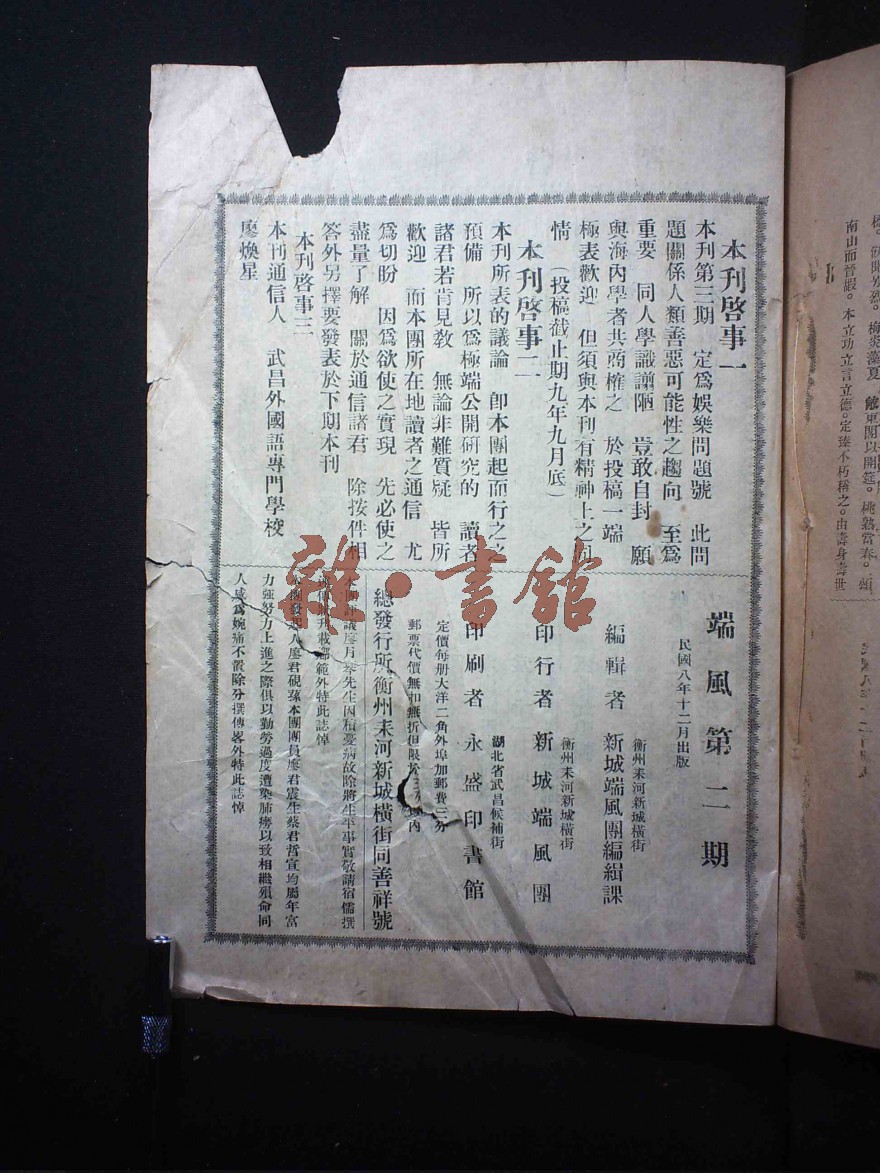 本刊啓事一
本刊第三期　定爲娛樂問題號　此問
題關係人類善惡可能性之趨向　至爲
重要　同人學識譾陋　豈敢自封　願
與海內學者共商榷之　於投稿一端
極表歡迎　但須與本刊有精神上之同
情　（投稿截止期九年九月底）
本刊啓事二
本刊所表的議論　卽本團起而行之之
預備　所以爲極端公開硏究的　讀者
諸君若肯見敎　無論非難質疑　皆所
歡迎　而本團所在地讀者之通信　尤
爲切盼　因爲欲使之實現　先必使之
盡量了解　關於通信諸君　除按件相
答外另擇要發表於下期本刊
本刊啓事三
本刊通信人　武昌外國語專門學校
廖煥星
端風第二期
民國八年十二月出版
衡州耒河新城橫街
編輯者　新城端風團編緝課
衡州耒河新城橫街
印行者　新城端風團
湖北省武昌候補街
印刷者　永盛印書館
定價每册大洋二角外埠加郵費三分
郵票代價無扣無折但限於三分以內
總發行所衡州耒河新城橫街同善祥號
本團評議廖月峯先生因積憂病故除將生平事實敬請宿儒撰
升載鄉範外特此誌悼
本團發起人廖君硯蓀本團團員廖君震生蔡君哲宣均屬年富
力强努力上進之際俱以勤勞過度遭染肺癆以致相繼殞命同
人感爲婉痛不置除分撰傳畧外特此誌悼
梅炎藻夏　館東閣以開筵。桃熟當春。頌
南山而晉嘏。本立功立言立德。定臻不朽稱之。由壽身壽世
雜·書館